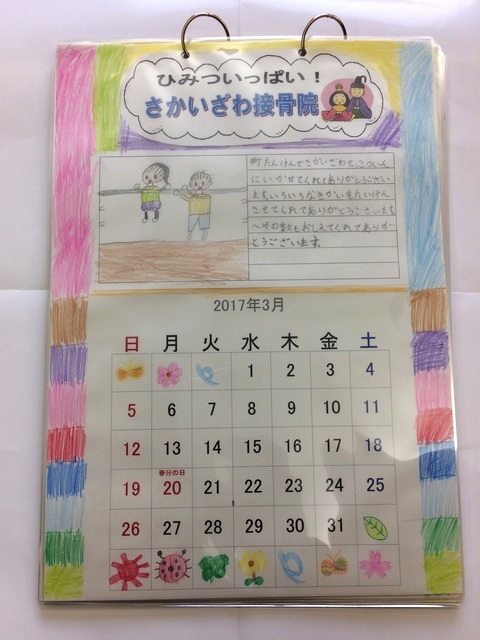 ひみついっぱい！
さかいざわ接骨院
町たんけんでさかいざわせっこついん
にいかせてくれてありがとうござい
ます。いろいろなきかいをたいけん
させてくれてありがとうございます
の数もおしえてくれてありが
とうございます。
2017年3月
日 月 火 水 木 金 土
1 2 3 4
5 6 7 8 9 10 11
12 13 14 15 16 17 18
春分の日
19 20 21 22 23 24 25
26 27 28 29 30 31